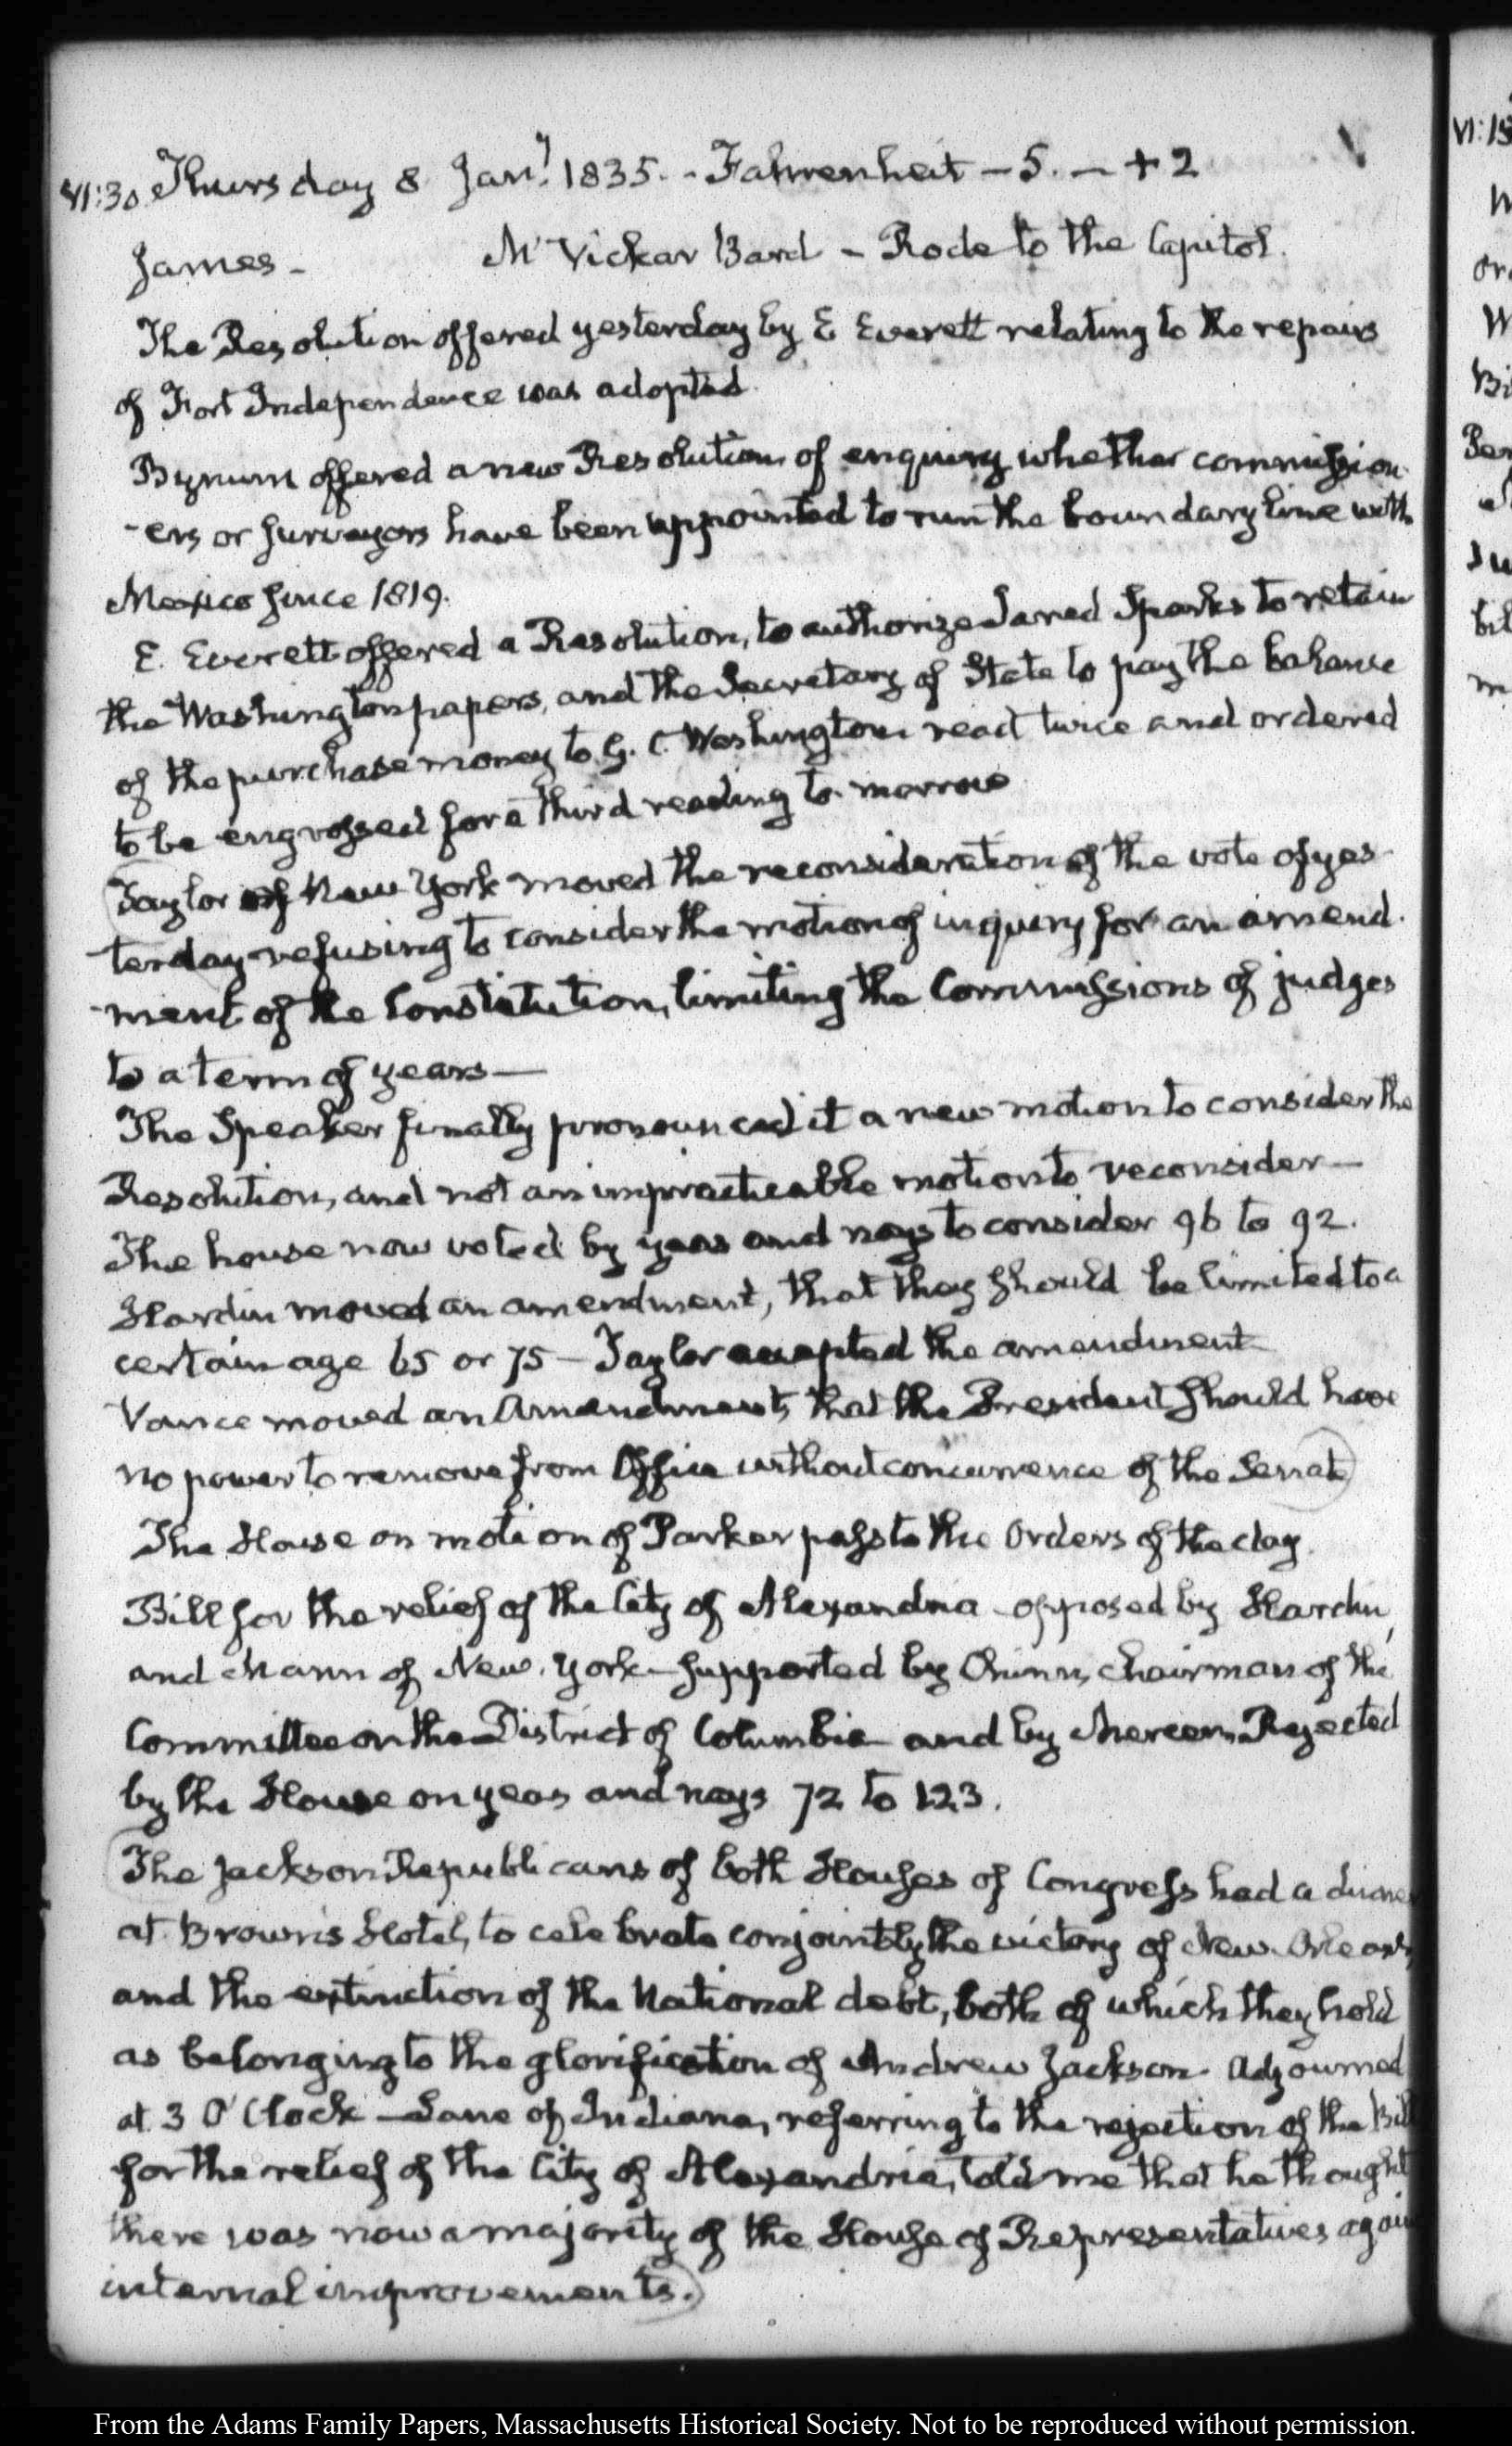 VI:30. Thursday 8 Jany. 1835. - Fahrenheit - 5. - + 2
James - McVickar Bard - Rode to the Capitol.
The Resolution offered yesterday by E Everett relating to the repairs
of Fort Independence was adopted
Bynum offered a new Resolution of enquiry whether commission-
-ers or surveyors have been appointed to run the boundary line with
Mexico since 1819.
E. Everett offered a Resolution, to authorize Jared Sparks to retain
the Washington papers, and the Secretary of State to pay the balance
of the purchase money to G. C. Washington read twice and ordered
to be engrossed for a third reading to-morrow
Taylor of New York moved the reconsideration of the vote of yes-
terday refusing to consider the motion of inquiry for an amend-
-ment of the Constitution, limiting the Commissions of judges
to a term of years—
The Speaker finally pronounced it a new motion to consider the
Resolution, and not an impracticable motion to reconsider—
The house now voted by yeas and nays to consider 96 to 92.
Hardin moved an amendment, that they should be limited to a
certain age 65 or 75 — Taylor accepted the amendment
Vance moved an Amendment, that the President should have
no power to remove from Office without concurrence of the Senate
The House on motion of Parker pass to the Orders of the day.
Bill for the relief of the City of Alexandria opposed by Hardin,
and Mann of New-York—supported by Chinn, Chairman of the
Committee on the District of Columbia and by Mercer. Rejected
by the House on yeas and nays 72 to 123.
The Jackson Republicans of both Houses of Congress had a dinner
at Brown's Hotel, to celebrate conjointly the victory of New-Orleans,
and the extinction of the National debt, both of which they hold
as belonging to the glorification of Andrew Jackson. Adjourned
at 3 O'Clock — Lane of Indiana, referring to the rejection of the Bill
for the relief of the City of Alexandria, told me that he thought
there was now a majority of the House of Representatives again
internal improvements.
VI:15
From the Adams Family Papers, Massachusetts Historical Society. Not to be reproduced without permission.